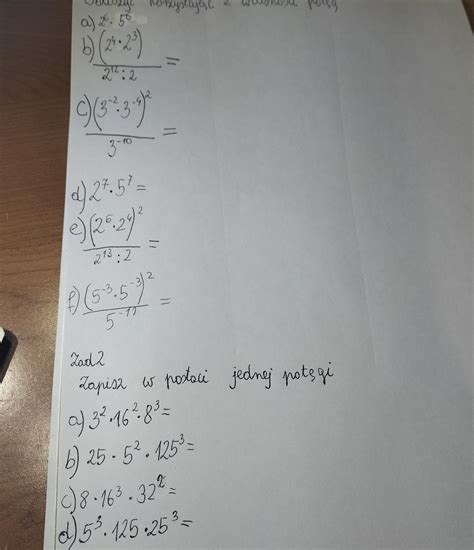 Obliczyć korzystając z własności potęg
a) 2⁶ · 5⁶
b) (2⁴ · 2³)
2¹² : 2 =
c) (3⁻² · 3⁻⁴)²
3⁻¹⁰ =
d) 2⁷ · 5⁷ =
e) (2⁶ · 2⁴)²
2¹³ : 2 =
f) (5⁻³ · 5⁻³)²
5⁻¹¹ =
Zad 2
Zapisz w postaci jednej potęgi
a) 3² · 16² · 8³ =
b) 25 · 5² · 125³ =
c) 8 · 16³ · 32² =
d) 5³ · 125 · 25³ =